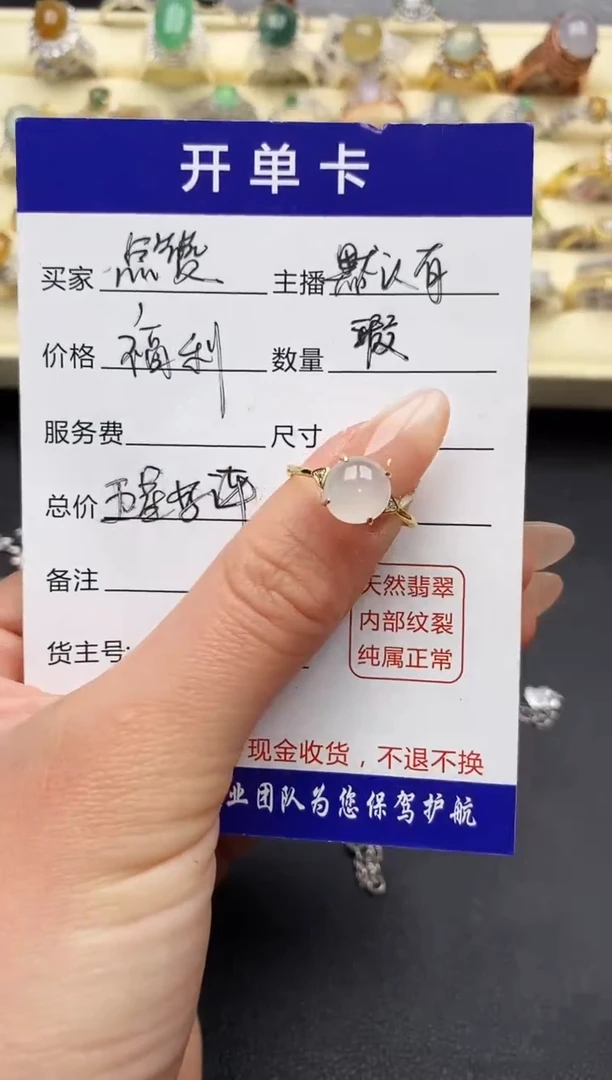 开单卡
买家 点赞 主播 默认有
价格 福利 数量 瑕
服务费 尺寸
总价
备注
货主号:
天然翡翠
内部纹裂
纯属正常
现金收货，不退不换
业团队为您保驾护航